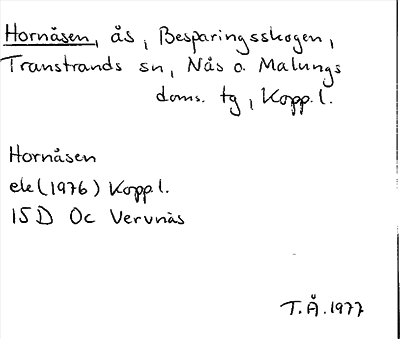 Hornåsen, ås, Besparingsskogen,
Transtrands sn, Nås o. Malungs
doms. tg, Kopp.l.
Hornåsen
ek (1976) Kopp l.
15D Oc Vervnäs
T.Å.1977